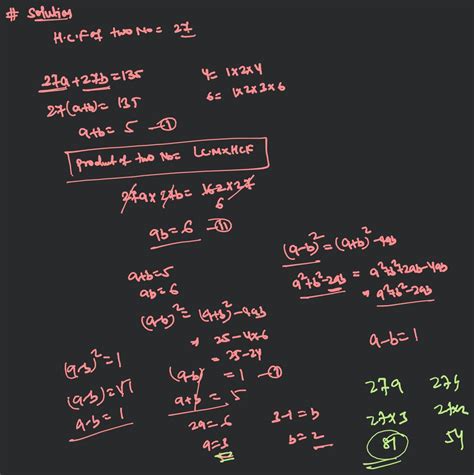 # Solution
H.C.F of two No = 27
27a + 27b = 135
27(a+b) = 135
a+b = 5 —①
4 = 1×2×4
6 = 1×2×3×6
product of two No = LCM×HCF
27a × 27b = 162×27
6
ab = 6 —⑪
a+b=5
ab = 6
(a-b)² = (a+b)² - 4ab
= 25 - 4×6
= 25-24
(a-b)² = (a+b)² - 4ab
a²+b²-2ab = a²+b²+2ab-4ab
= a²+b²-2ab
a-b=1
(a-b)² = 1
(a-b) = √1
a-b = 1
(a-b) = 1
a+b = 5
2a = 6
a=3
3-1 = b
b = 2
27a
27×3
81
54